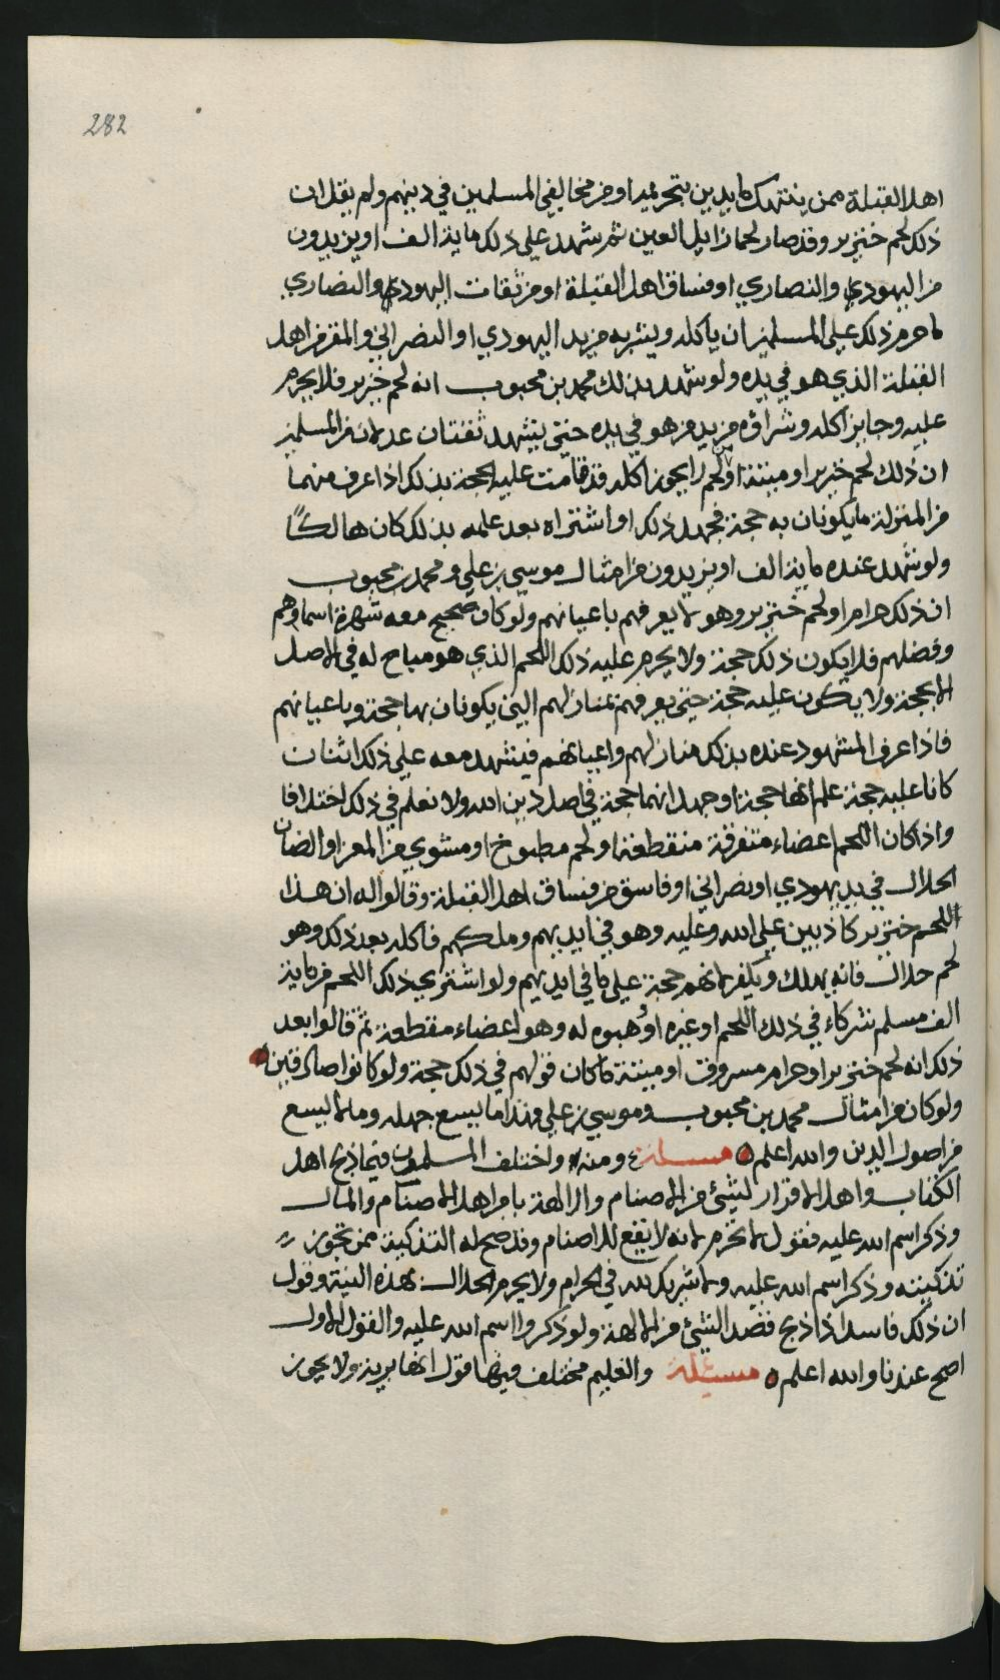 282
اهل القبلة ممن ينتهك ما يدين بتحريمه او من مخالفي المسلمين في دينهم ولم يقل ان
ذلك لحم خنزير وقد صار لحما زايل العين ثم شهد على ذلك ماية الف او يزيدون
من اليهودي والنصاري او فساق اهل القبلة او من ثقات اليهودي والنصاري
ما حرم ذلك على المسلمين ان ياكله ويشربه من يد اليهودي او النصراني والمقر من اهل
القبلة الذي هو في يده ولو شهد بذلك محمد بن محبوب انه لحم خنزير فلا يحرم
عليه وجايز اكله وشراؤه من يد من هو في يده حتى يشهد ثقتان عدلان من المسلمين
ان ذلك لحم خنزير او ميتة او لحم لا يجوز اكله قد قامت عليه الحجة بذلك اذا عرف منهما
من المنزلة ما يكونان به حجة فجهل ذلك او اشتراه بعد علمه بذلك كان هالكًا
ولو شهد عنده ماية الف او يزيدون من امثال موسى بن علي ومحمد بن محبوب
ان ذلك حرام او لحم خنزير وهو لا يعرفهم باعيانهم ولو كان صحيح معه شهرة اسماؤهم
وفضلهم فلا يكون ذلك حجة ولا يحرم عليه ذلك اللحم الذي هو مباح له في الاصل
الا بحجة ولا يكون عليه حجة حتى يعرفهم بمنازلهم التي يكونان بها حجة وباعيانهم
فاذا عرف المشهود عنده بذلك منازلهم واعيانهم فيشهد معه على ذلك اثنان
كانا عليه حجة علم انها حجة او جهل انهما حجة في اصل دين الله ولا نعلم في ذلك اختلافا
واذا كان اللحم اعضاء متفرقة متقطعة او لحم مطبوخ او مشوي من المعز او الضان
الحلال في يد يهودي او نصراني او فاسق من فساق اهل القبلة وقالوا له ان هذا
اللحم خنزير كاذبين على الله وعليه وهو في ايديهم وملكهم فاكله بعد ذلك وهو
لحم حلال فانه يهلك ويكفر لانهم حجة على ما في ايديهم ولو اشترى ذلك اللحم من ماية
الف مسلم شركاء في ذلك اللحم او غيره او وهبوه له وهو اعضاء مقطعة ثم قالوا بعد
ذلك انه لحم خنزير او حرام مسروق او ميتة ما كان قولهم في ذلك حجة ولو كانوا صادقين
ولو كان من امثال محمد بن محبوب وموسى بن علي وهذا ما يسع جهله وما لا يسع
من اصول الدين والله اعلم مسئلة ومنه واختلف المسلمون فيما ذبح اهل
الكتاب واهل الاقرار لشيء من الاصنام والالهة بامر اهل الاصنام والمال
وذكر اسم الله عليه فقول لا تحرم لانه لا يقع للاصنام وقد صح له التذكية ممن تجوز
تذكيته وذكر اسم الله عليه ولا شريك لله في الحرام ولا يحرم الحلال بهذه النية وقول
ان ذلك فاسد اذا ذبح قصد الشيء من الالهة ولو ذكروا اسم الله عليه والقول الاول
اصح عندنا والله اعلم مسئلة والغليم مختلف فيها قول انها برية ولا يجوز